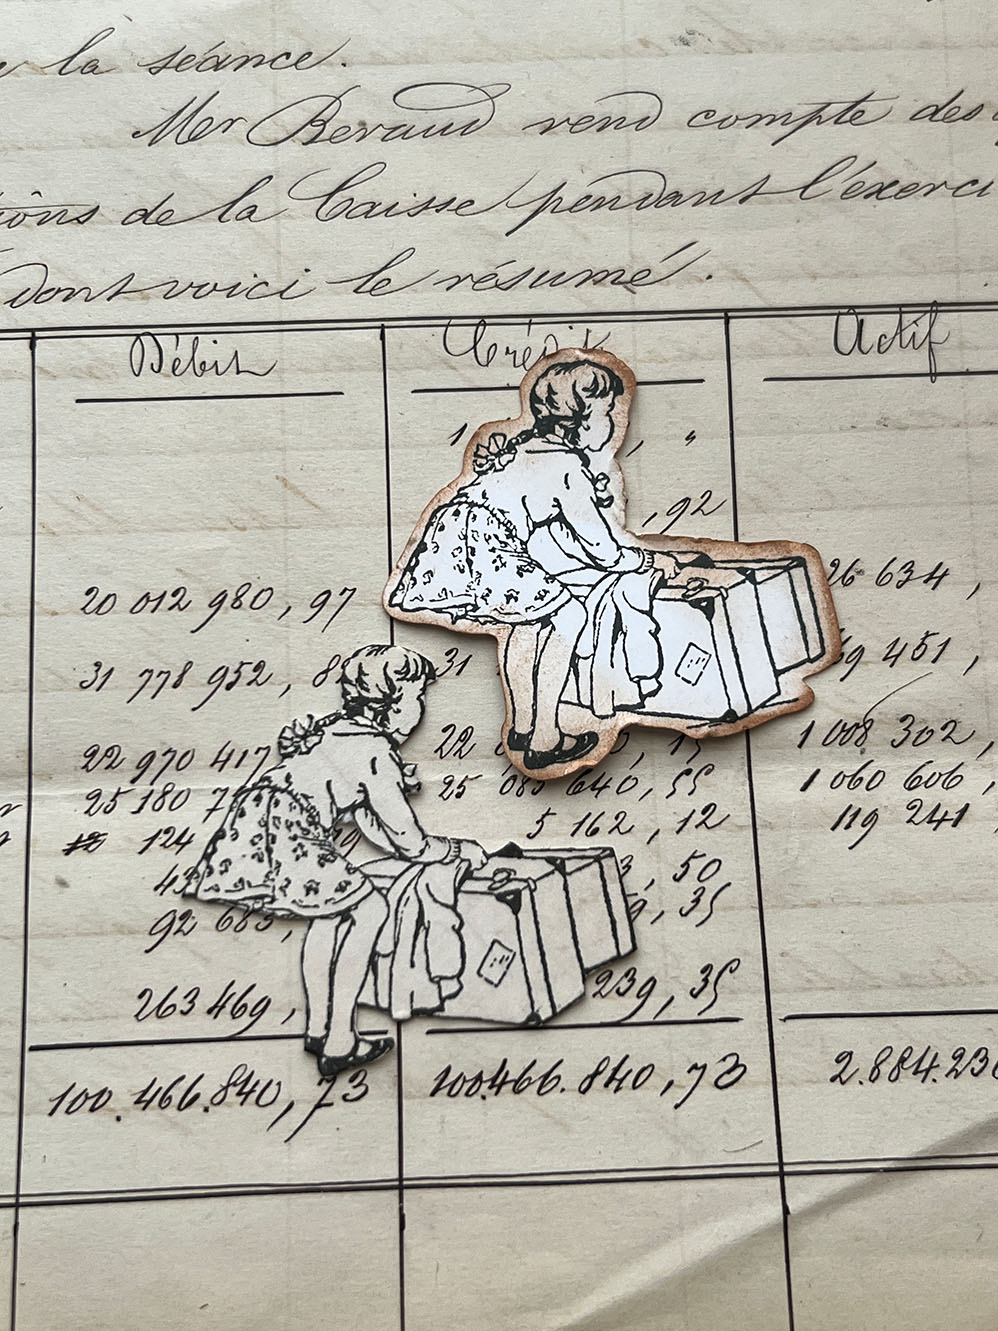 la séance.
Mr Beraud rend compte des
de la Caisse pendant l'exerci
dont voici le résumé.
Débit Crédit Actif
1 , "
, 92
20 012 980, 97 26 634,
31 778 952, 8 31 9 451,
22 970 417 22 0 0, 15 1 008 302,
25 180 7 25 085 640, 55 1 060 606,
124 19 5 162, 12 119 241
43 3, 50
92 685, 9, 35
263 469, 239, 35
100.466.840, 73 100.466.840, 73 2.884.236